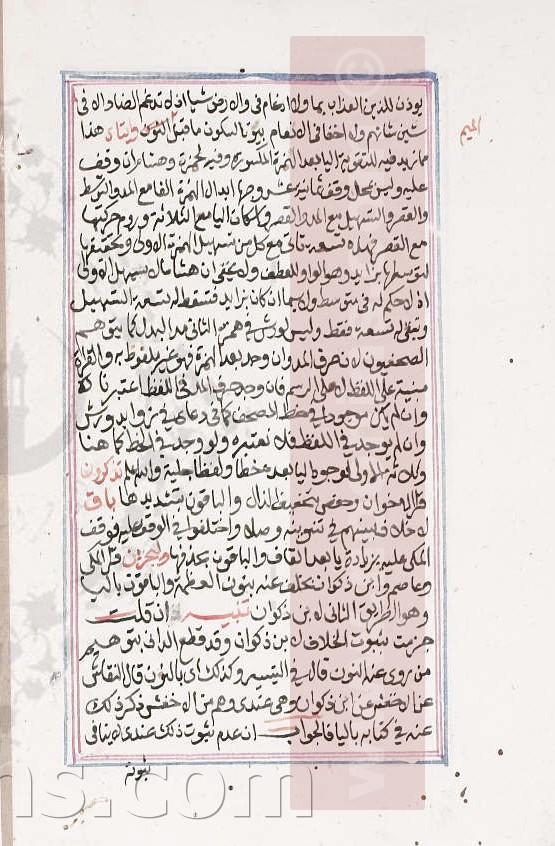 يوذن للذين العذاب بما ولا ادغام في والارض شيا اذ لا تدغم الضاد الا في
شين شانهم ولا اخفا في الانعام بيوتا لسكون ما قبل النون وايتاي هذا
مما زيد فيه للتقوية اليا بعد الهمزة المكسورة وفيه لحمزة وهشام ان وقف
عليه وليس بمحل وقف ثمانية عشر وجها ابدال الهمزة الفا مع المد والتوسط
والقصر والتسهيل مع المد والقصر واسكان اليا مع الثلاثة وروم حركتها
مع القصر فهذه تسعة تاتي مع كل من تسهيل الهمزة الاولى وتحقيقها
لتوسطها بزايد وهو الواو للعطف ولا يخفى ان هشاما لا يسهل الاولى
اذ لا حكم له في متوسط ولا سيما ان كان بزايد فتسقط له تسعة التسهيل
وتبقى له تسعة فقط وليس لورش في همزه الثاني مد البدل كما يتوهم
الصحفيون لان حرف المد وان وجد بعد الهمزة فهو غير ملفوظ به والقراة
مبنية على اللفظ لا على الرسم فان وجد حرف المد في اللفظ اعتبرناه
وان لم يكن موجودا في خط المصحف كما في دعائي في زوايد ورش
وان لم يوجد في اللفظ فلا نعتبره ولو وجد في الخط كما هنا
وثلاثة الاولى لوجود اليا بعده خطا ولفظا جلية والله اعلم تذكرون
قرا الاخوان وحفص بتخفيف الذال والباقون بتشديدها باق
لا خلاف بينهم في تنوينه وصلا واختلفوا في الوقف عليه فوقف
المكي عليه بزيادة يا بعد القاف والباقون بحذفها ولنجزين قرا المكي
وعاصم وابن ذكوان بخلف عنه بنون العظمة والباقون باليا
وهو الطريق الثاني لابن ذكوان تنبيه ان قلت
جزمت بثبوت الخلاف لابن ذكوان وقد قطع الداني بتوهيم
من روى عنه النون قال في التيسير وكذلك اي بالنون قال النقاش
عن الاخفش عن ابن ذكوان وهي عندي وهم من الاخفش ذكر ذلك
عنه في كتابه باليا فالجواب ان عدم ثبوت ذلك عندي لا ينافي
ثبوته
الميم
ns.com